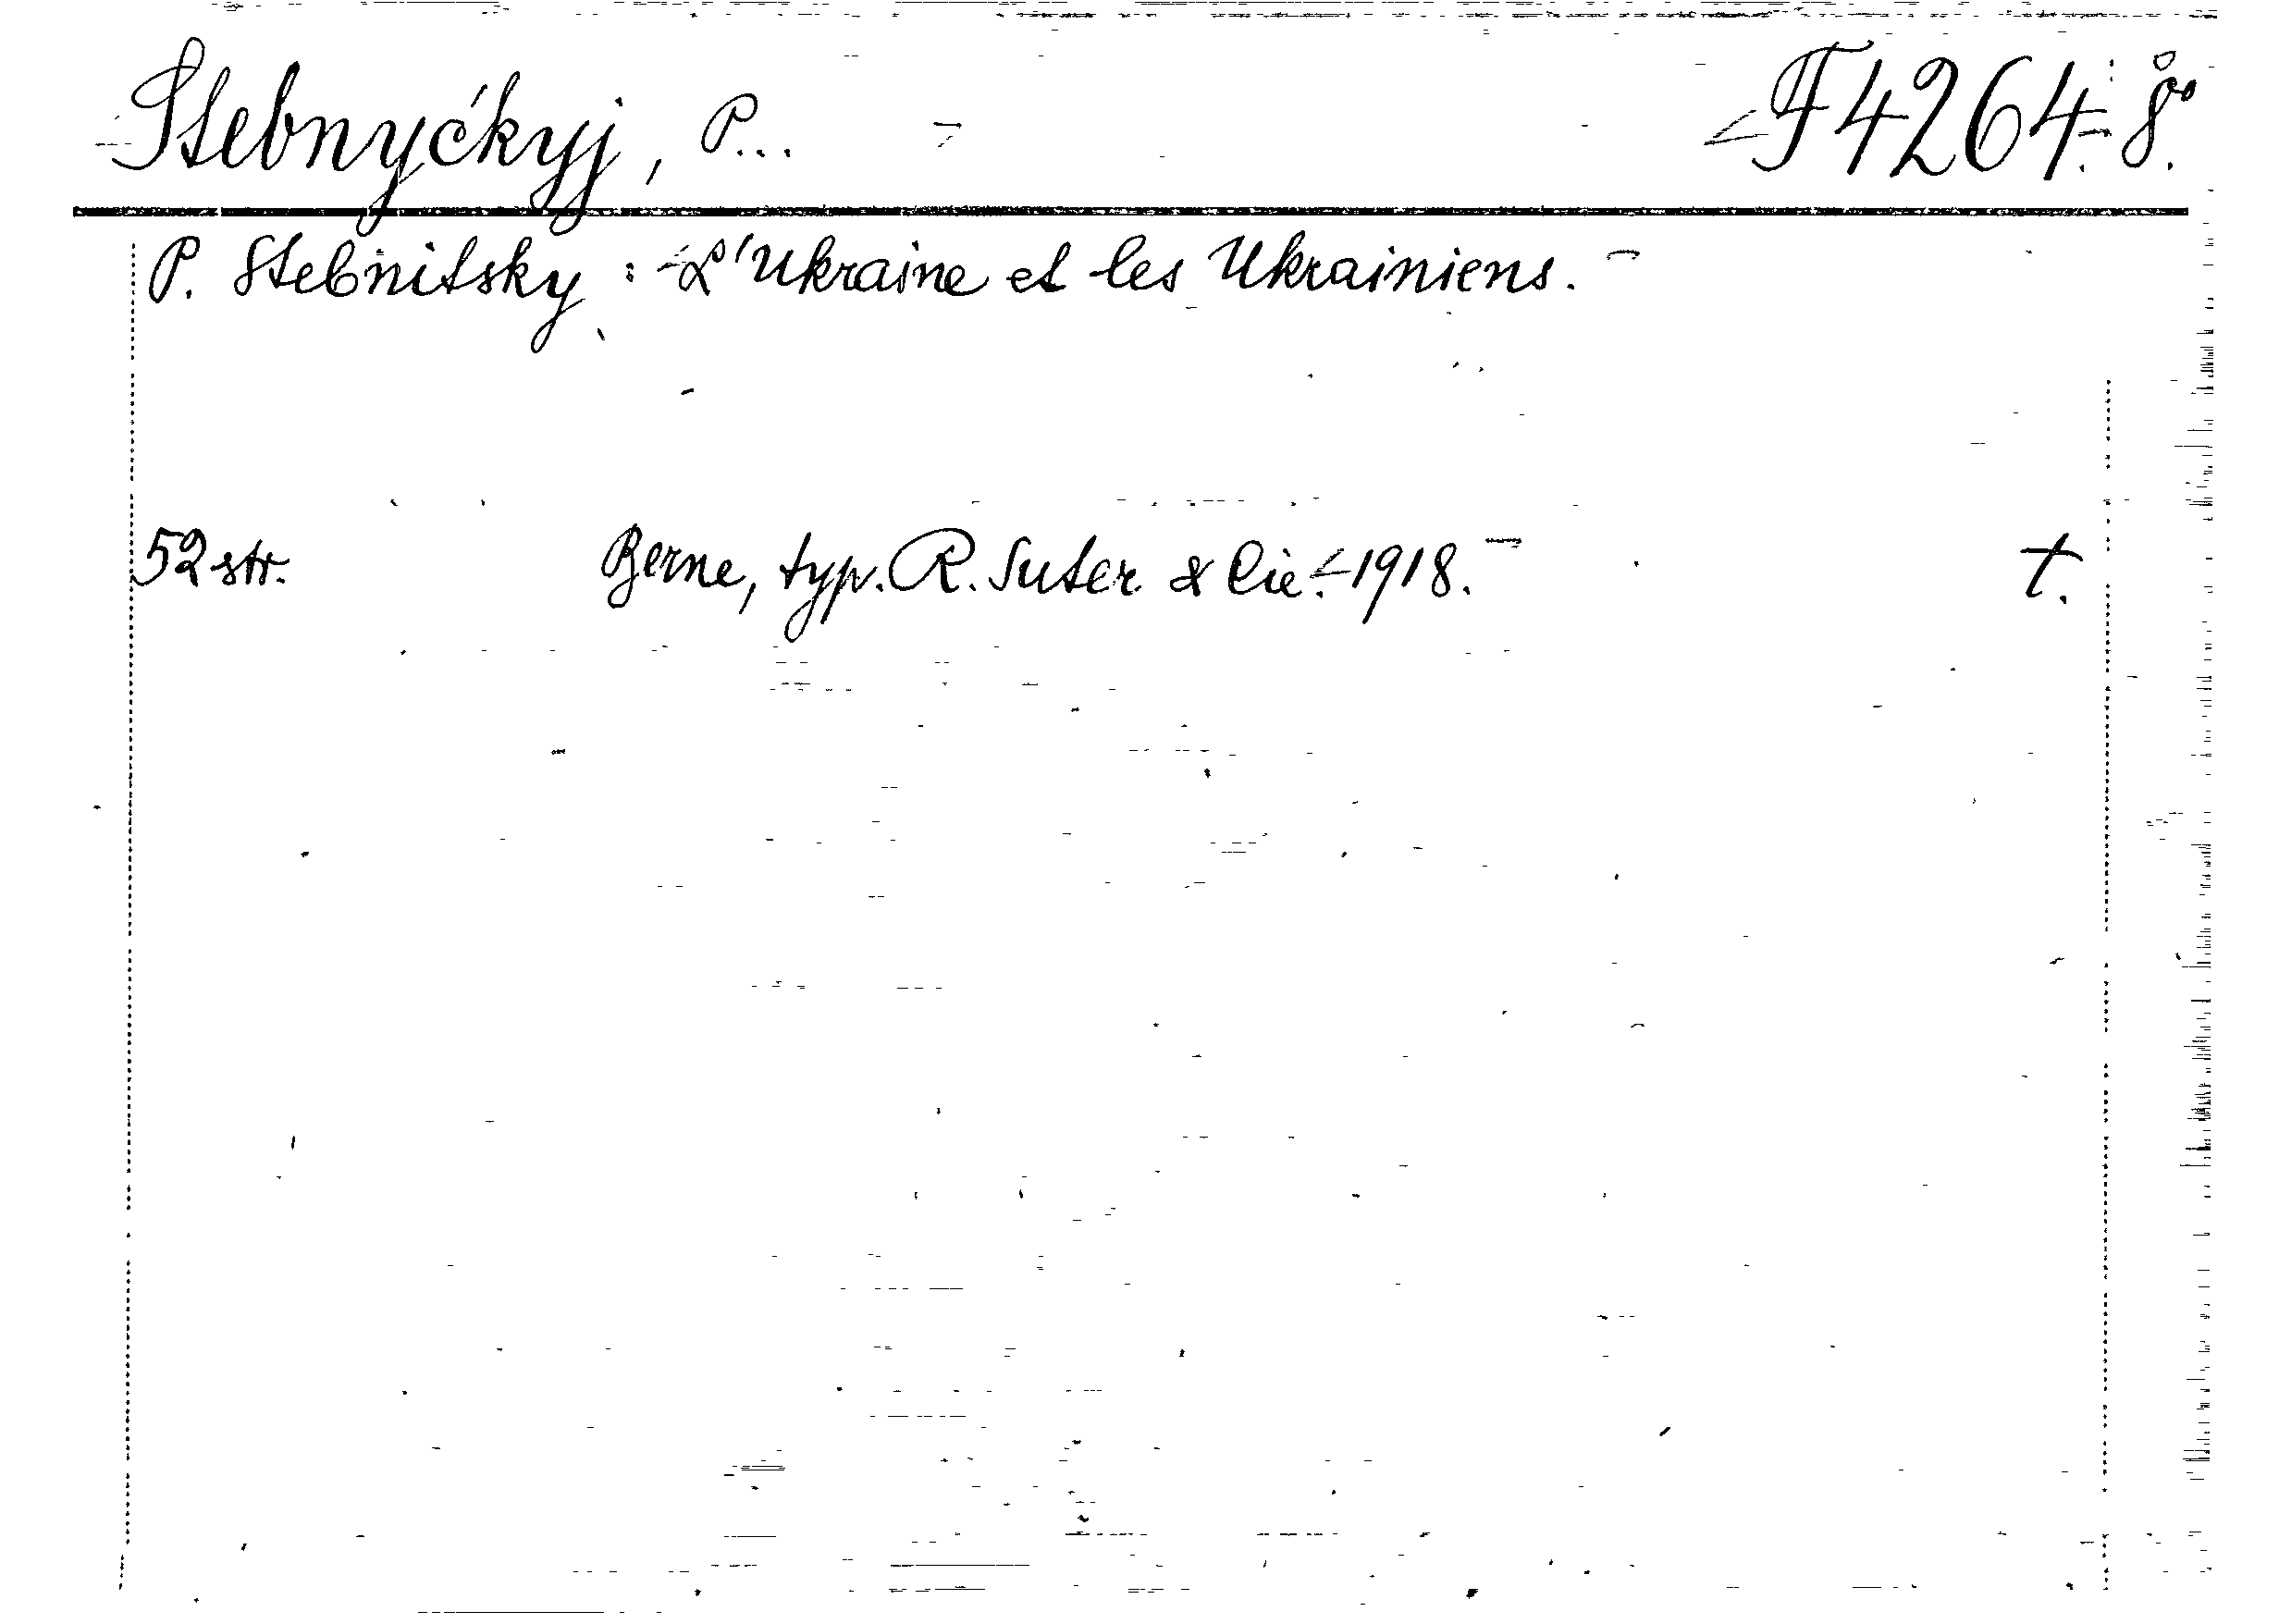 Stebnyćkyj, P... F 4264. 8°.
P. Stebnitsky : L'Ukraine et les Ukrainiens.
52 str. Berne, typ. R. Suter & Cie. 1918. t.